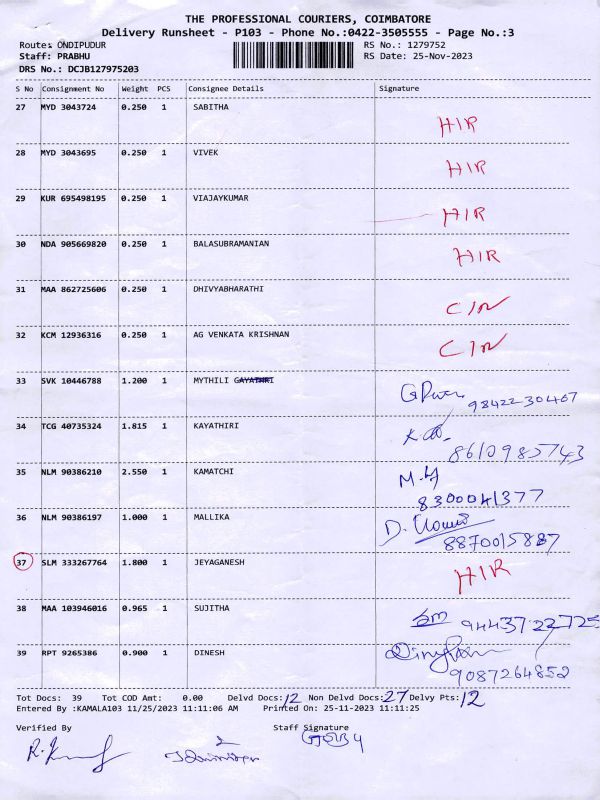 THE PROFESSIONAL COURIERS, COIMBATORE
Delivery Runsheet - P103 - Phone No.:0422-3505555 - Page No.:3
Route: ONDIPUDUR RS No.: 1279752
Staff: PRABHU RS Date: 25-Nov-2023
DRS No.: DCJB127975203
S No Consignment No Weight PCS Consignee Details Signature
27 MYD 3043724 0.250 1 SABITHA HIR
28 MYD 3043695 0.250 1 VIVEK HIR
29 KUR 695498195 0.250 1 VIAJAYKUMAR HIR
30 NDA 905669820 0.250 1 BALASUBRAMANIAN HIR
31 MAA 862725606 0.250 1 DHIVYABHARATHI C/N
32 KCM 12936316 0.250 1 AG VENKATA KRISHNAN C/N
33 SVK 10446788 1.200 1 MYTHILI GAYATHRI
9842230467
34 TCG 40735324 1.815 1 KAYATHIRI
8610985743
35 NLM 90386210 2.550 1 KAMATCHI
8300041377
36 NLM 90386197 1.000 1 MALLIKA
8870015887
37 SLM 333267764 1.800 1 JEYAGANESH HIR
38 MAA 103946016 0.965 1 SUJITHA
9443722725
39 RPT 9265386 0.900 1 DINESH
9087264852
Tot Docs: 39 Tot COD Amt: 0.00 Delvd Docs: 12 Non Delvd Docs: 27 Delvy Pts: 12
Entered By :KAMALA103 11/25/2023 11:11:06 AM Printed On: 25-11-2023 11:11:25
Verified By Staff Signature